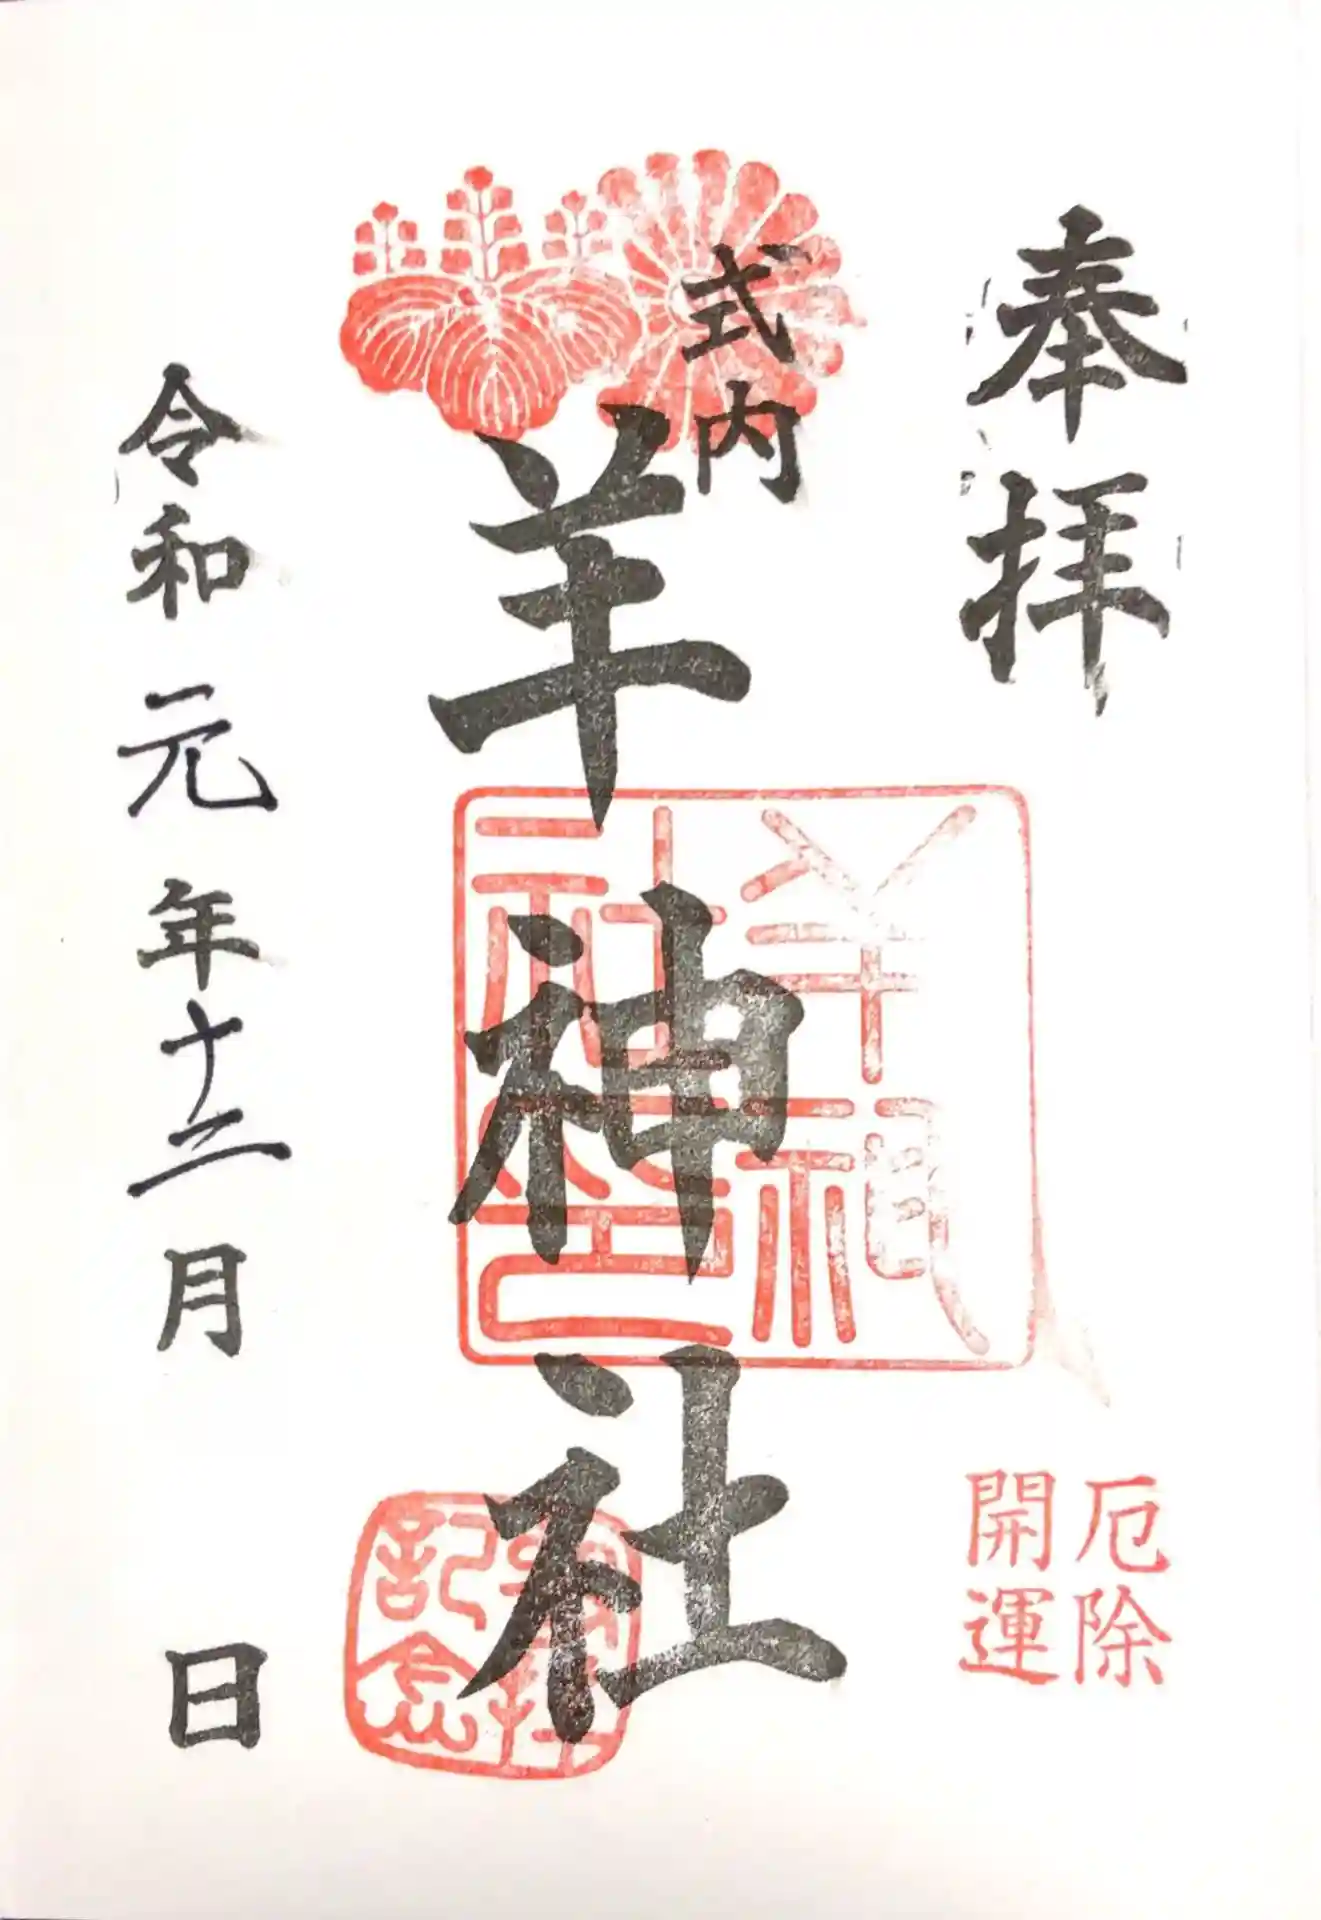 奉拝
厄除
開運
式内
羊神社
羊神
社印
参拝
記念
令和元年十二月 日